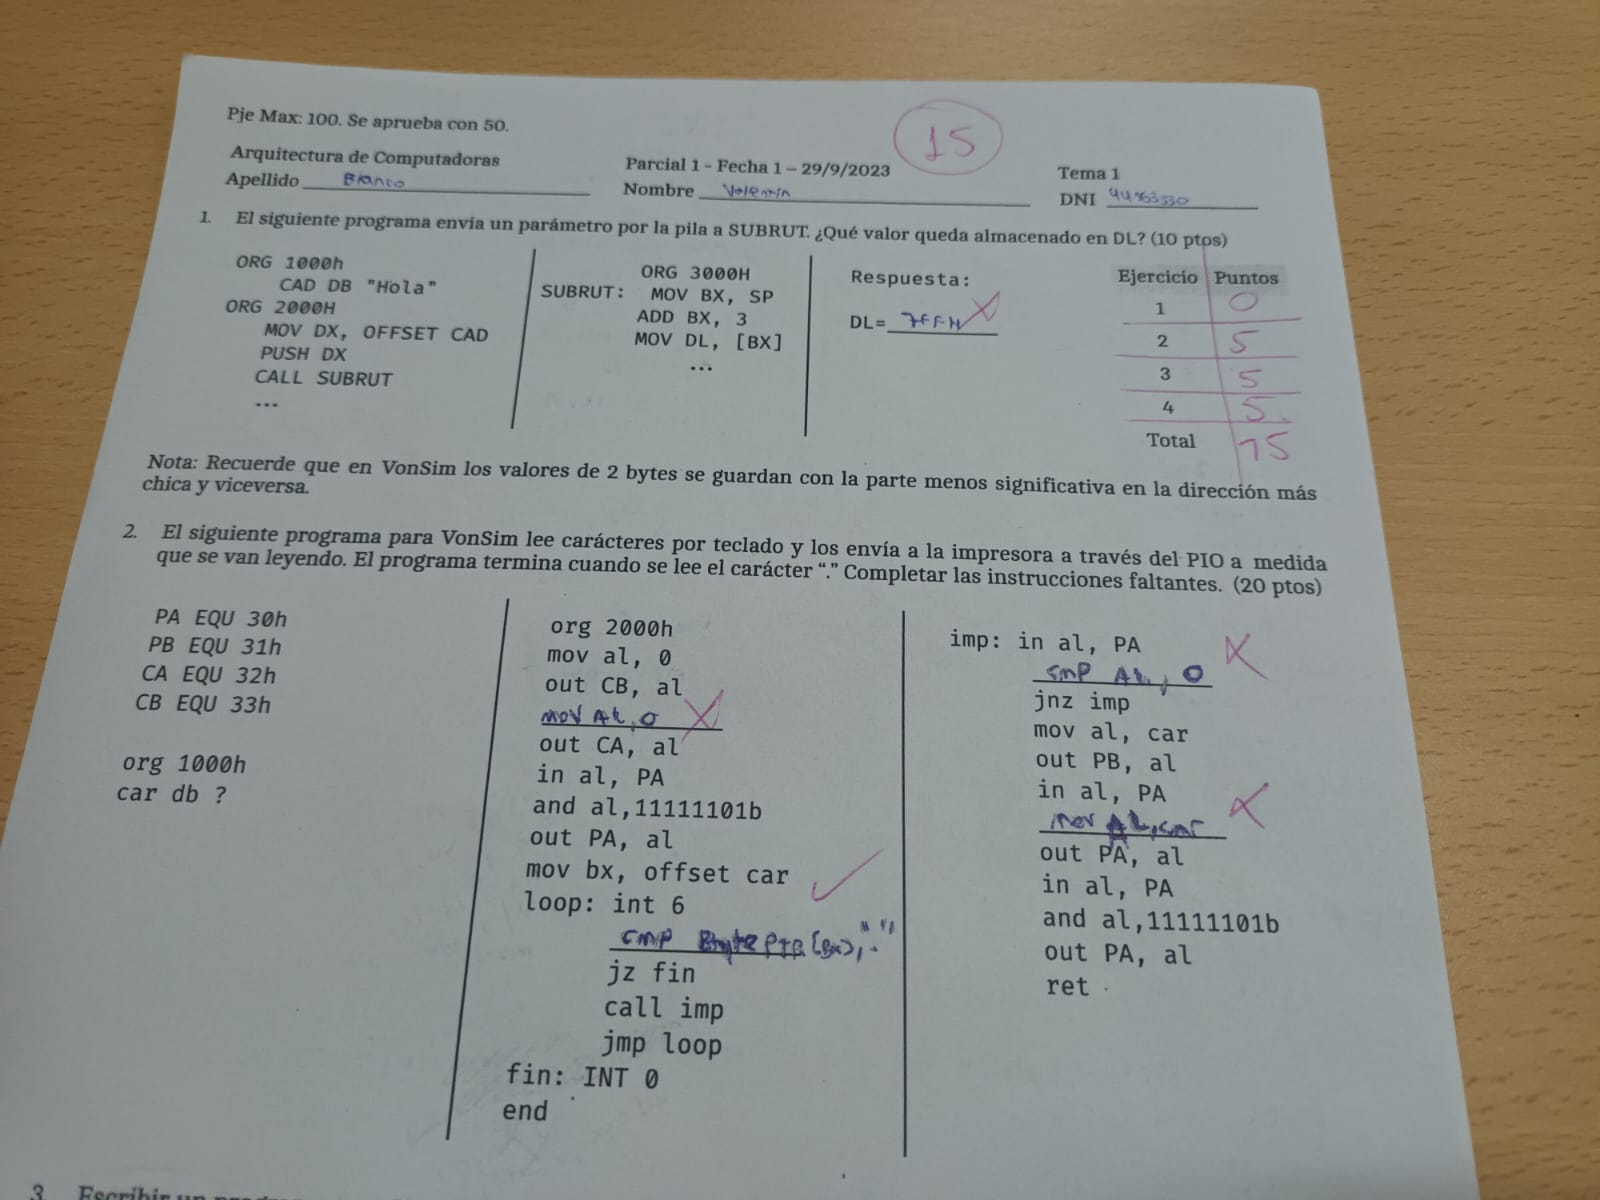 Pje Max: 100. Se aprueba con 50.
15
Arquitectura de Computadoras
Parcial 1 - Fecha 1 – 29/9/2023
Tema 1
Apellido Bianco
Nombre Valentín
DNI
1. El siguiente programa envía un parámetro por la pila a SUBRUT. ¿Qué valor queda almacenado en DL? (10 ptos)
ORG 1000h
CAD DB "Hola"
ORG 2000H
MOV DX, OFFSET CAD
PUSH DX
CALL SUBRUT
...
ORG 3000H
SUBRUT: MOV BX, SP
ADD BX, 3
MOV DL, [BX]
...
Respuesta:
DL= 7FFH
Ejercicio Puntos
1 0
2 5
3 5
4 5
Total 15
Nota: Recuerde que en VonSim los valores de 2 bytes se guardan con la parte menos significativa en la dirección más
chica y viceversa.
2. El siguiente programa para VonSim lee carácteres por teclado y los envía a la impresora a través del PIO a medida
que se van leyendo. El programa termina cuando se lee el carácter “.” Completar las instrucciones faltantes. (20 ptos)
PA EQU 30h
PB EQU 31h
CA EQU 32h
CB EQU 33h
org 1000h
car db ?
org 2000h
mov al, 0
out CB, al
mov AL, 0
out CA, al
in al, PA
and al,11111101b
out PA, al
mov bx, offset car
loop: int 6
cmp Byte PTR [BX], "."
jz fin
call imp
jmp loop
fin: INT 0
end
imp: in al, PA
CMP AL, 0
jnz imp
mov al, car
out PB, al
in al, PA
mov AL, car
out PA, al
in al, PA
and al,11111101b
out PA, al
ret
3. Escribir un